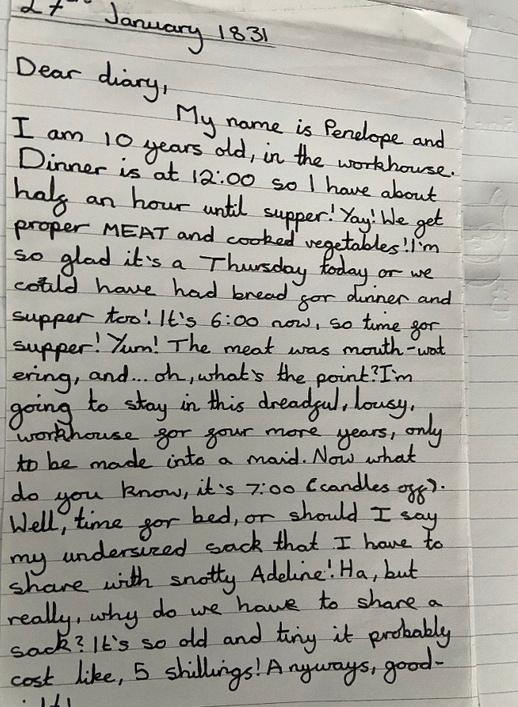 27th January 1831
Dear diary,
My name is Penelope and
I am 10 years old, in the workhouse.
Dinner is at 12:00 so I have about
half an hour until supper! Yay! We get
proper MEAT and cooked vegetables! I'm
so glad it's a Thursday today or we
could have had bread for dinner and
supper too! It's 6:00 now, so time for
supper! Yum! The meat was mouth-wat
ering, and... oh, what's the point? I'm
going to stay in this dreadful, lousy,
workhouse for four more years, only
to be made into a maid. Now what
do you know, it's 7:00 (candles off).
Well, time for bed, or should I say
my undersized sack that I have to
share with snotty Adeline! Ha, but
really, why do we have to share a
sack? It's so old and tiny it probably
cost like, 5 shillings! Anyways, good-